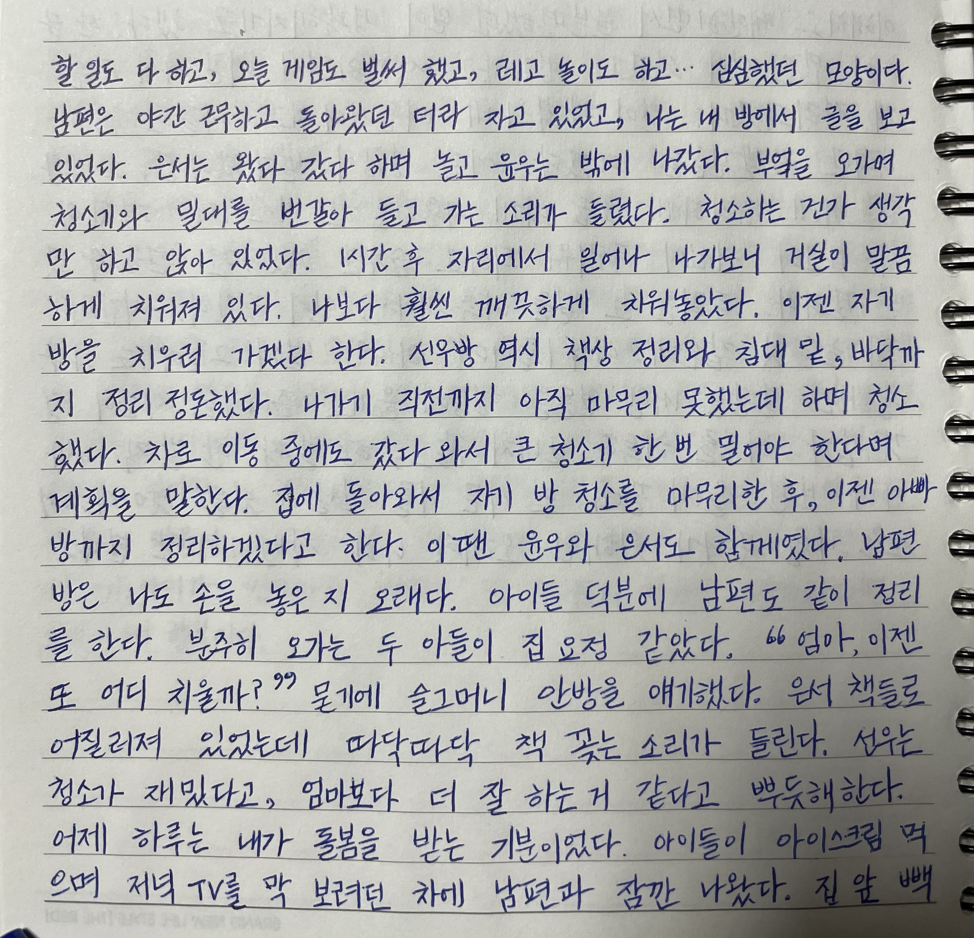 할 일도 다 하고, 오늘 게임도 벌써 했고, 레고 놀이도 하고… 심심했던 모양이다.
남편은 야간 근무하고 돌아왔던 터라 자고 있었고, 나는 내 방에서 글을 보고
있었다. 은서는 왔다 갔다 하며 놀고 윤우는 밖에 나갔다. 부엌을 오가며
청소기와 밀대를 번갈아 들고 가는 소리가 들렸다. 청소하는 건가 생각
만 하고 앉아 있었다. 1시간 후 자리에서 일어나 나가보니 거실이 말끔
하게 치워져 있다. 나보다 훨씬 깨끗하게 치워놓았다. 이젠 자기
방을 치우러 가겠다 한다. 선우방 역시 책상 정리와 침대 밑, 바닥까
지 정리 정돈했다. 나가기 직전까지 아직 마무리 못했는데 하며 청소
했다. 차로 이동 중에도 갔다 와서 큰 청소기 한 번 밀어야 한다며
계획을 말한다. 집에 돌아와서 자기 방 청소를 마무리한 후, 이젠 아빠
방까지 정리하겠다고 한다. 이땐 윤우와 은서도 함께였다. 남편
방은 나도 손을 놓은 지 오래다. 아이들 덕분에 남편도 같이 정리
를 한다. 분주히 오가는 두 아들이 집 요정 같았다. “엄마, 이젠
또 어디 치울까?” 묻기에 슬그머니 안방을 얘기했다. 은서 책들로
어질러져 있었는데 따닥따닥 책 꽂는 소리가 들린다. 선우는
청소가 재밌다고, 엄마보다 더 잘 하는 거 같다고 뿌듯해한다.
어제 하루는 내가 돌봄을 받는 기분이었다. 아이들이 아이스크림 먹
으며 저녁 TV를 막 보려던 차에 남편과 잠깐 나왔다. 집 앞 빽